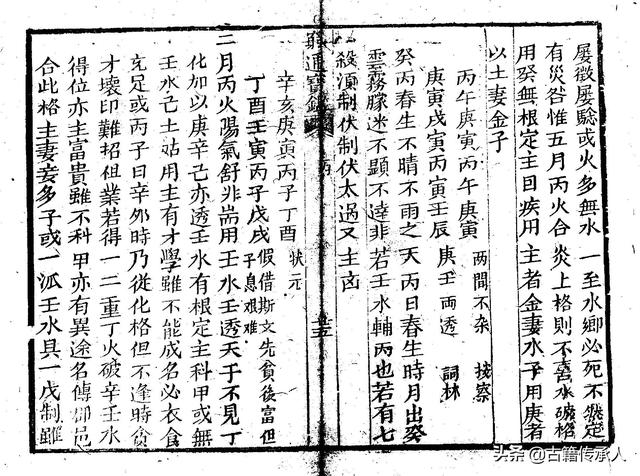 屢徵屢驗或火多無水一至水鄉必死不然定
有災咎惟五月丙火合炎上格則不喜水破格
用癸無根定主目疾用主者金妻水子用庚者
以土妻金子
丙午庚寅丙午庚寅 兩間不杂 按察
庚寅戊寅丙寅壬辰 庚壬两透 詞林
癸丙春生不晴不雨之天丙日春生時月出癸
雲霧朦迷不顯不達非若壬水輔丙也若有七
殺須制伏制伏太過又主凶
窮通寶鑑
丙
辛亥庚寅丙子丁酉 狀元
丁酉壬寅丙子戊戌 假借斯文先貧後富但子息艱难
二月丙火陽氣舒耑用壬水壬透天干不見丁
化加以庚辛己亦透壬水有根定主科甲或無
壬水己土姑用主有才學雖不能成名必衣食
充足或丙子日辛夘時乃從化格但不逢時貪
才壞印難招祖業若得一二重丁火破辛壬水
得位亦主富貴雖不科甲亦有異途名傳郡邑
合此格主妻妾多子或一派壬水具一戊制雖
头条@古籍传承人